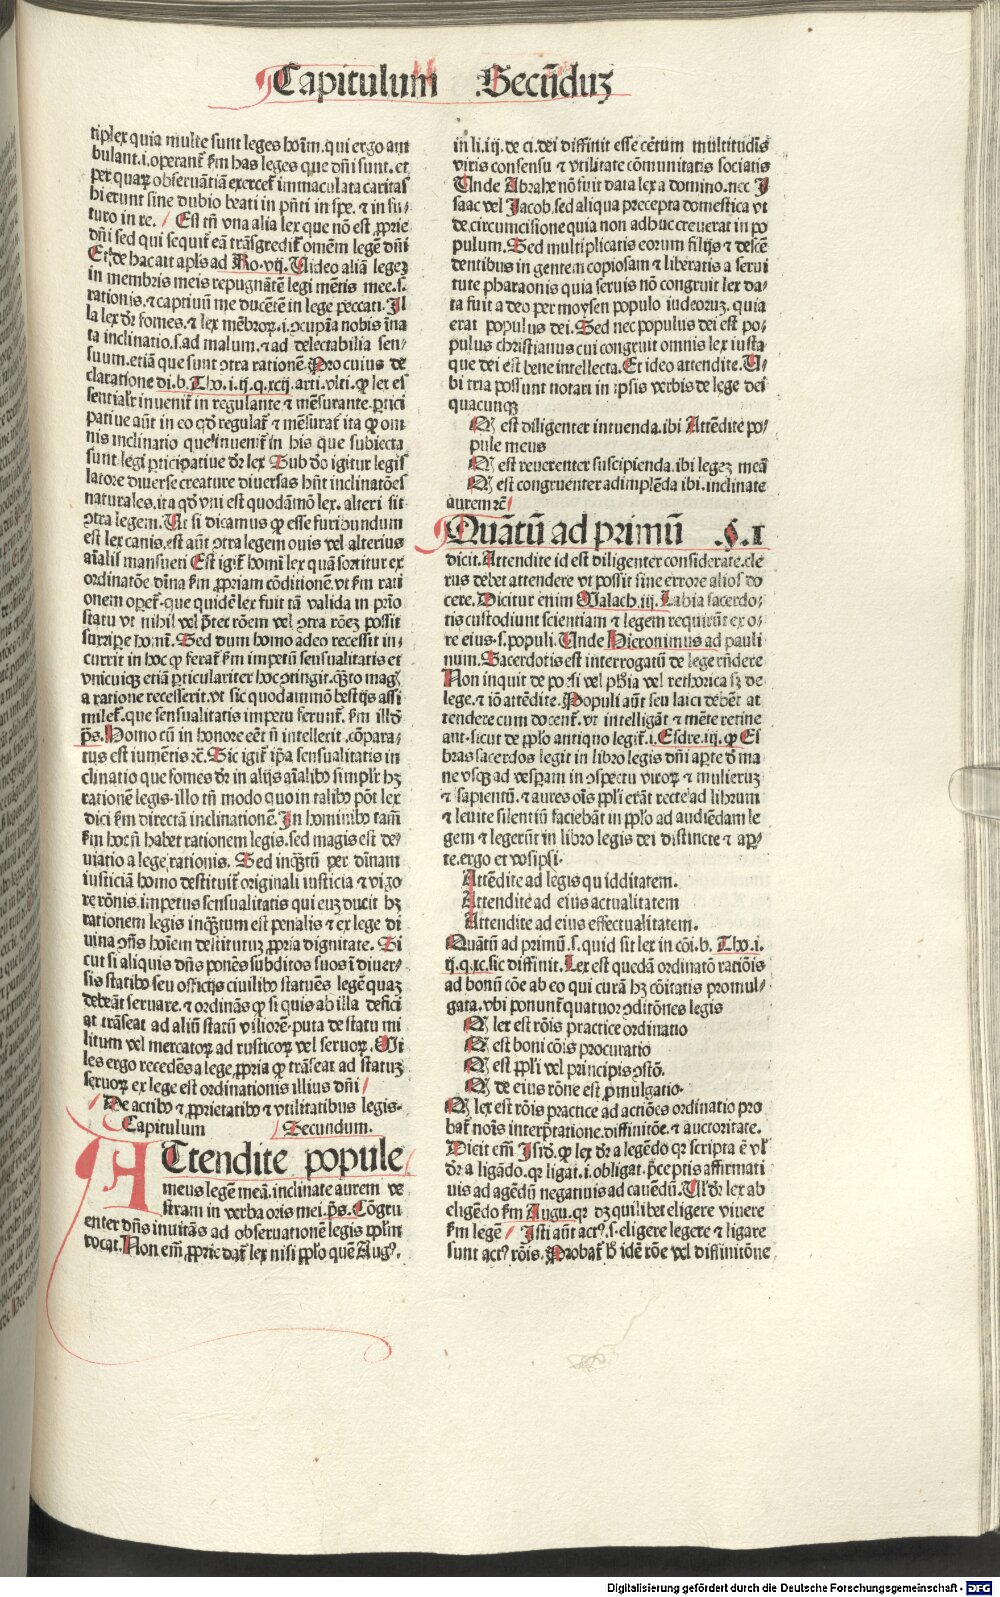 Capitulum Secūduꝫ
tiplex quia multe sunt leges hoīm. qui ergo am
bulant .i. operant᷑ ẜm has leges que dn̄i sunt. et
per quaꝝ obseruātiā exercet᷑ immaculata caritas
hi erunt sine dubio beati in pn̄ti in spe. ⁊ in fu⸗
turo in re. Est tn̄ vna alia lex que nō est ꝓprie
dn̄i sed qui sequit᷑ eā trāsgredit᷑ omēm legē dn̄i
Et de hac ait apl̄s ad Ro. vij. Uideo aliā legeꝫ
in membris meis repugnātē legi mētis mee .s.
rationis. ⁊ captiuū me ducētē in lege peccati. Il
la lex dr̄ fomes. ⁊ lex mēbroꝝ .i. ↄcupīa nobis īna
ta inclinatio .s. ad malum. ⁊ ad delectabilia sen⸗
suum. etiā que sunt ↄtra rationē. Pro cuius de
claratione di. b. Tho. i. ij. q. xcij. arti. vlti. ꝙ lex es
sentialr̄ inuenit᷑ in regulante ⁊ mēsurante. ꝑtici
patiue aūt in eo qd̄ regulat᷑ ⁊ mēsurat᷑ ita ꝙ om
nis inclinatio que inuenit᷑ in his que subiecta
sunt legi ꝑticipatiue dr̄ lex Sub dn̄o igitur legis
latore diuerse creature diuersas hn̄t inclinatōes
naturales. ita qd̄ vni est quodāmō lex. alteri sit
ↄtra legem. Ut si dicamus ꝙ esse furibundum
est lex canis. est aūt ↄtra legem ouis vel alterius
aīalis mansueti Est igit᷑ homī lex quā sortitur ex
ordinatōe dīna ẜm ꝓpriam cōditionē. vt ẜm rati
onem operet᷑. que quidē lex fuit tā valida in prīo
statu vt nihil vel p̄ter rōem vel ↄtra rōeꝫ possit
surripe homī. Sed dum homo a deo recessit in⸗
currit in hoc ꝙ ferat᷑ ẜm impetū sensualitatis et
vnicuiqꝫ etiā ꝑticulariter hoc ↄtingit. qn̄to mag̉
a ratione recesserit. vt sic quodammō bestijs assi
milet᷑. que sensualitatis impetu ferunt᷑. ẜm illd̄
p̄s. Homo cū in honore eēt n̄ intellexit. cōpara⸗
tus est iumētis ⁊c̄. Sic igit᷑ ip̄a sensualitatis in
clinatio que fomes dr̄ in alijs aīalibꝰ simplr̄ hꝫ
rationē legis. illo tn̄ modo quo in talibꝰ pōt lex
dici ẜm directā inclinationē. In hominibꝰ tam̄
ẜm hoc n̄ habet rationem legis. sed magis est de⸗
uiatio a lege rationis. Sed inqn̄tū per dīnam
iusticiā homo destituit᷑ originali iusticia ⁊ vigo
re rōnis. impetus sensualitatis qui euꝫ ducit hꝫ
rationem legis inqn̄tum est penalis ⁊ ex lege di
uina ↄn̄s hoīem destitutuꝫ ꝓpria dignitate. Si
cut si aliquis dn̄s ponēs subditos suos ī diuer⸗
sis statibꝰ seu officijs ciuilibꝰ statuēs legē quaꝫ
debeāt seruare. ⁊ ordinās ꝙ si quis ab illa defici
at trāseat ad aliū statū viliorē. puta de statu mi
litum vel mercatoꝝ ad rusticoꝝ vel seruoꝝ. Mi
les ergo recedēs a lege ꝓpria ꝙ trāseat ad statuꝫ
seruoꝝ ex lege est ordinationis illius dn̄i
De actibꝰ ⁊ ꝓprietatibꝰ ⁊ vtilitatibus legis.
Capitulum Secundum.
ATtendite popule
meus legē meā. inclinate aurem ve
stram in verba oris mei. p̄s. Cōgru
enter dn̄s inuitās ad obseruationē legis ppl̄m
vocat. Non em̄ ꝓprie dat᷑ lex nisi ppl̄o quē Augꝰ.
in li. iij. de ci. dei diffinit esse cētum multitudīs
viris consensu ⁊ vtilitate cōmunitatis sociatis
Unde Abrahe nō fuit data lex a domino. nec I
saac vel Jacob. sed aliqua precepta domestica vt
de circumcisione quia non adhuc creuerat in po
pulum. Sed multiplicatis eorum filijs ⁊ descē
dentibus in gentem copiosam ⁊ liberatis a serui
tute pharaonis quia seruis nō congruit lex da⸗
ta fuit a deo per moysen populo iudeoruꝫ. quia
erat populus dei. Sed nec populus dei est po⸗
pulus christianus cui congruit omnis lex iusta
que dei est bene intellecta. Et ideo attendite. U⸗
bi tria possunt notari in ipsius verbis de lege dei
quacunqꝫ
Ꝙ est diligenter intuenda. ibi Attēdite po⸗
pule meus
Ꝙ est reuerenter suscipienda. ibi legeꝫ meā
Ꝙ est congruenter adimplēda ibi. inclinate
aurem ⁊c̄
Quātū ad primū .§. I
dicit. Attendite id est diligenter considerate. cle
rus debet attendere vt possit sine errore alios do
cere. Dicitur enim Malach. iij. Labia sacerdo⸗
tis custodiunt scientiam ⁊ legem requirūt ex o⸗
re eius .s. populi. Unde Hieronimus ad pauli
num. Sacerdotis est interrogatū de lege rn̄dere
Non inquit de poesi vel phīa vel rethorica sꝫ de
lege. ⁊ iō attēdite. Populi aūt seu laici debēt at
tendere cum docent᷑. vt intelligāt ⁊ mēte retine
ant. sicut de ppl̄o antiquo legit᷑. i. Esdre. iij. ꝙ Es
dras sacerdos legit in libro legis dn̄i aperte d̄ ma
ne vsqꝫ ad vesperam in ↄspectu viroꝝ ⁊ mulieruꝫ
⁊ sapientū. ⁊ aures oīs ppl̄i erāt recte ad librum
⁊ leuite silentiū faciebāt in ppl̄o ad audiēdam le
gem ⁊ legerūt in libro legis dei distincte ⁊ aꝑ⸗
te. ergo et vos ipsi.
Attēdite ad legis quidditatem.
Attendite ad eius actualitatem
Attendite ad eius effectualitatem.
Quātū ad primū .s. quid sit lex in cōi. b. Tho. i.
ij. q. xc. sic diffinit. Lex est quedā ordinatō ratiōis
ad bonū cōe ab eo qui curā hꝫ cōitatis promul⸗
gata. vbi ponunt᷑ quatuor ↄditōnes legis
Ꝙ lex est rōis practice ordinatio
Ꝙ est boni cōis procuratio
Ꝙ est ppl̄i vel principis ↄstō.
Ꝙ de eius rōne est ꝓmulgatio.
Ꝙ lex est rōis practice ad actiōes ordinatio pro
bat᷑ noīs interp̄tatione. diffinitōe. ⁊ auctoritate.
Dicit em̄ Isid̄. ꝙ lex dr̄ a legēdo qr̄ scripta ē vl̓
dr̄ a ligādo. qr̄ ligat .i. obligat. p̄ceptis affirmati
uis ad agēdū negatiuis ad cauēdū. Ul̓ dr̄ lex ab
eligēdo ẜm Augu. qr̄ dꝫ quilibet eligere viuere
ẜm legē Isti aūt actꝰ .s. eligere legere ⁊ ligare
sunt actꝰ rōis. Probat᷑ h̄ idē rōe vel diffinitōne
Digitalisierung gefördert durch die Deutsche Forschungsgemeinschaft - DFG